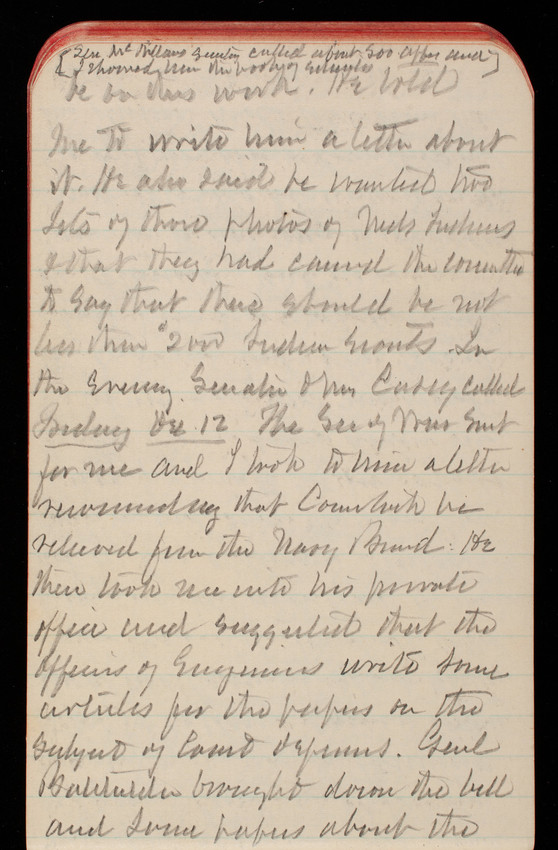 [Gen Mc called about 500 after and
I showed him the book of
be on this work. He told
me to write him a letter about
it. He also said he wanted two
sets of those photos of Indians
& that they had caused the committee
to say that there should be not
less than 2000 Indian Scouts. In
the evening Senator & Mrs Casey called
Friday Dec. 12 The Sec of War sent
for me and I took to him a letter
recommending that Comstock be
relieved from the Navy Board. He
then took me into his private
office and suggested that the
officers of Engineers write some
articles for the papers on the
subject of Coast defenses. Genl
brought down the bill
and some papers about the